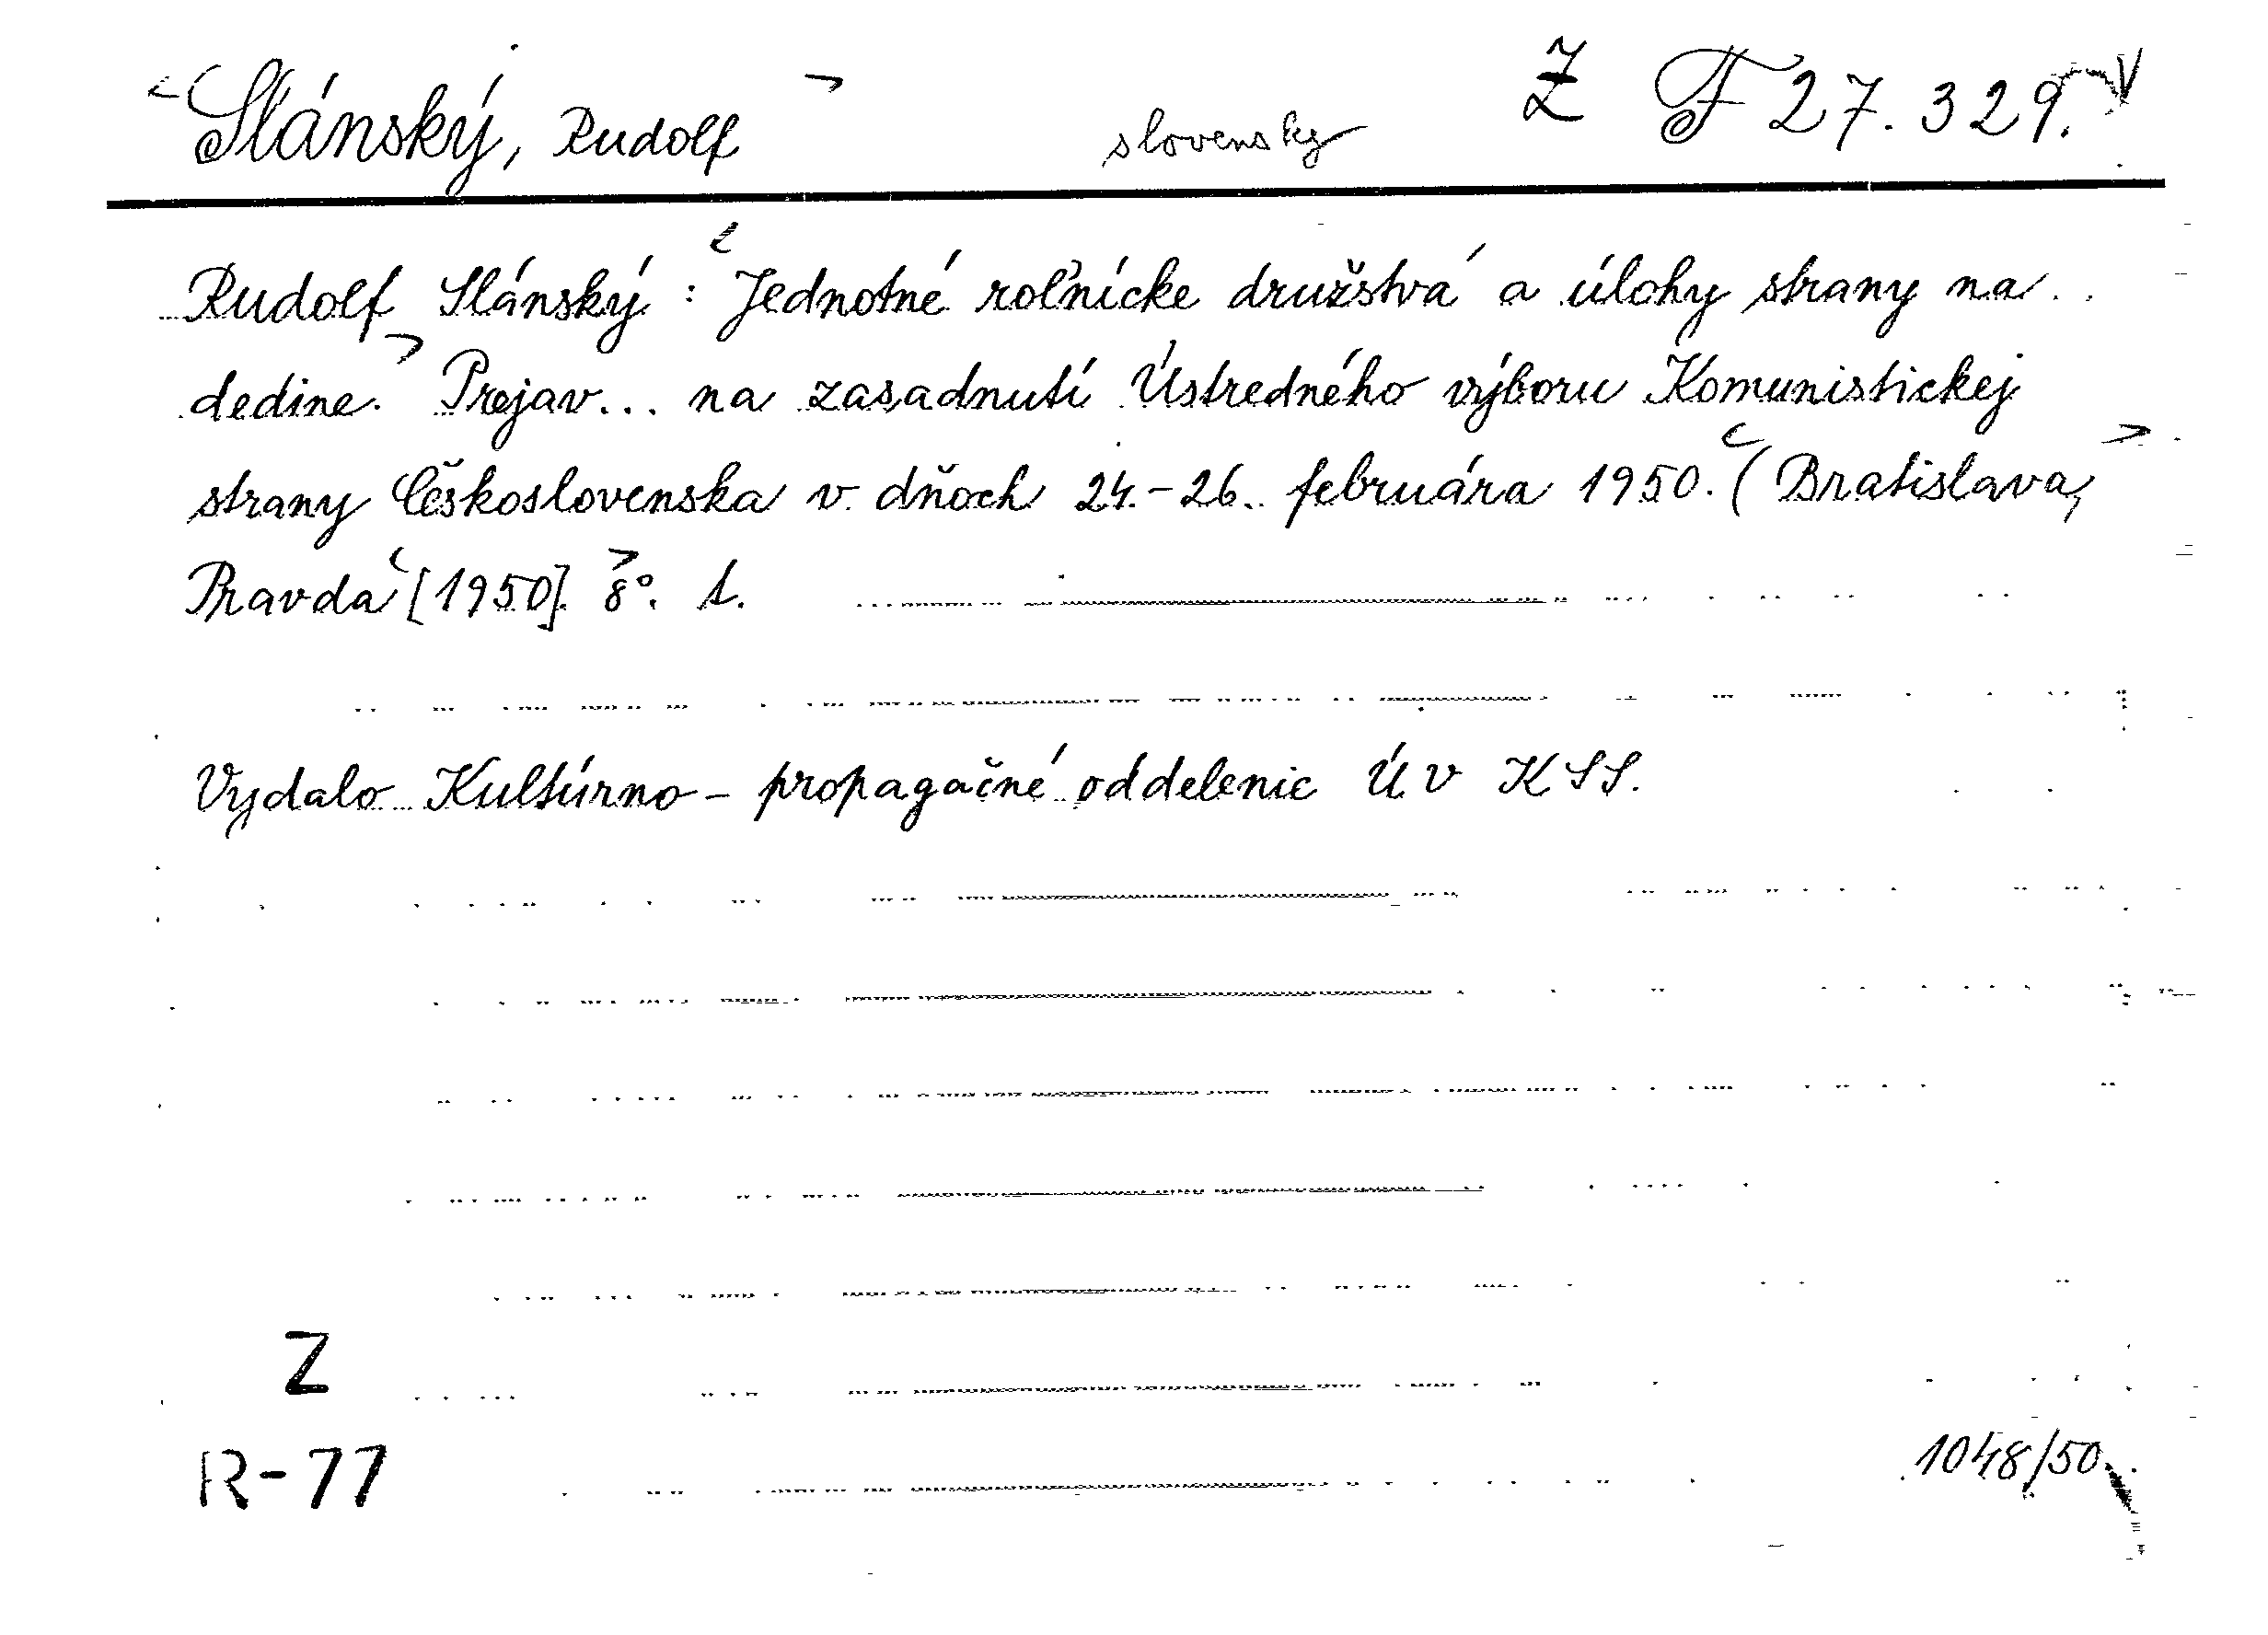 Slánský, Rudolf slovensky Z F 27.329.
Rudolf Slánský: Jednotné roľnícke družstvá a úlohy strany na
dedine. Prejav... na zasadnutí Ústredného výboru Komunistickej
strany Československa v dňoch 24.-26. februára 1950. (Bratislava,
Pravda [1950]. 8°.
Vydalo Kultúrno-propagačné oddelenie ÚV KSS.
Z
R-77
1048/50.